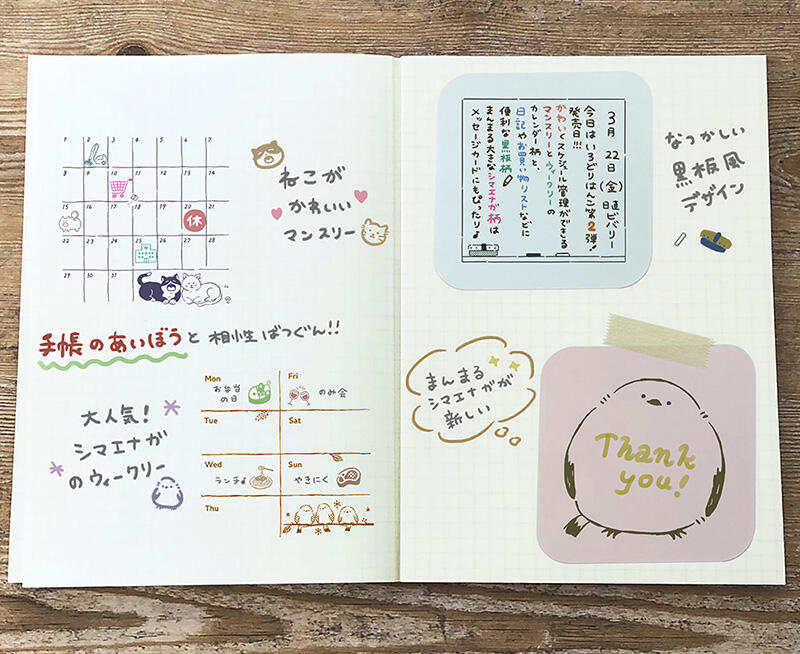 1 2 3 4 5 6 7
8 9 10 11 12 13 14
15 16 17 18 19 20 21
休
22 23 24 25 26 27 28
29 30 31
ねこが
かわいい
マンスリー
手帳のあいぼうと 相性ばつぐん!!
大人気!
シマエナガ
のウィークリー
Mon
お弁当
の日
Fri
のみ会
Tue
Sat
Wed
ランチ♪
Sun
やきにく
Thu
3月 22日(金) 日直 ビバリー
今日はいろどりはんこ第2弾!
発売日!!!
かわいくスケジュール管理ができる
マンスリーとウィークリーの
カレンダー柄と、
日記やお買い物リストなどに
便利な黒板柄
まんまる大きなシマエナガ柄は
メッセージカードにもぴったり♪
なつかしい
黒板風
デザイン
まんまる
シマエナガが
新しい
Thank
you!